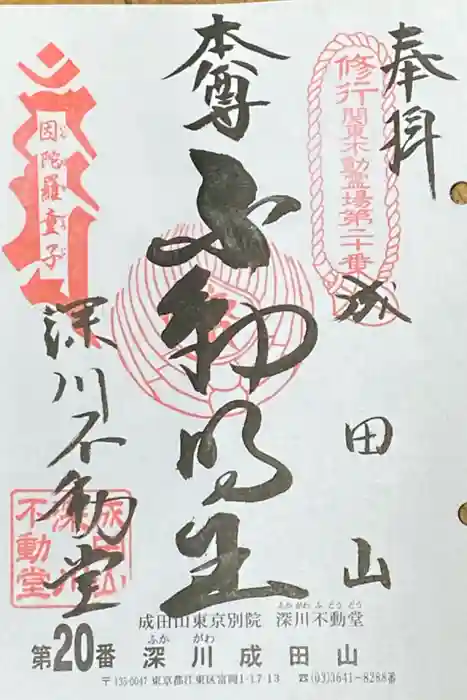 奉拝
成田山
修行 関東不動霊場第二十番
本尊
不動明王
因陀羅童子
深川不動堂
成田山
深川
不動堂
成田山東京別院 深川不動堂
ふか がわ ふ どう どう
第20番 深川成田山
ふか がわ
〒135-0047 東京都江東区富岡1-17-13 ☎(03)3641-8288番